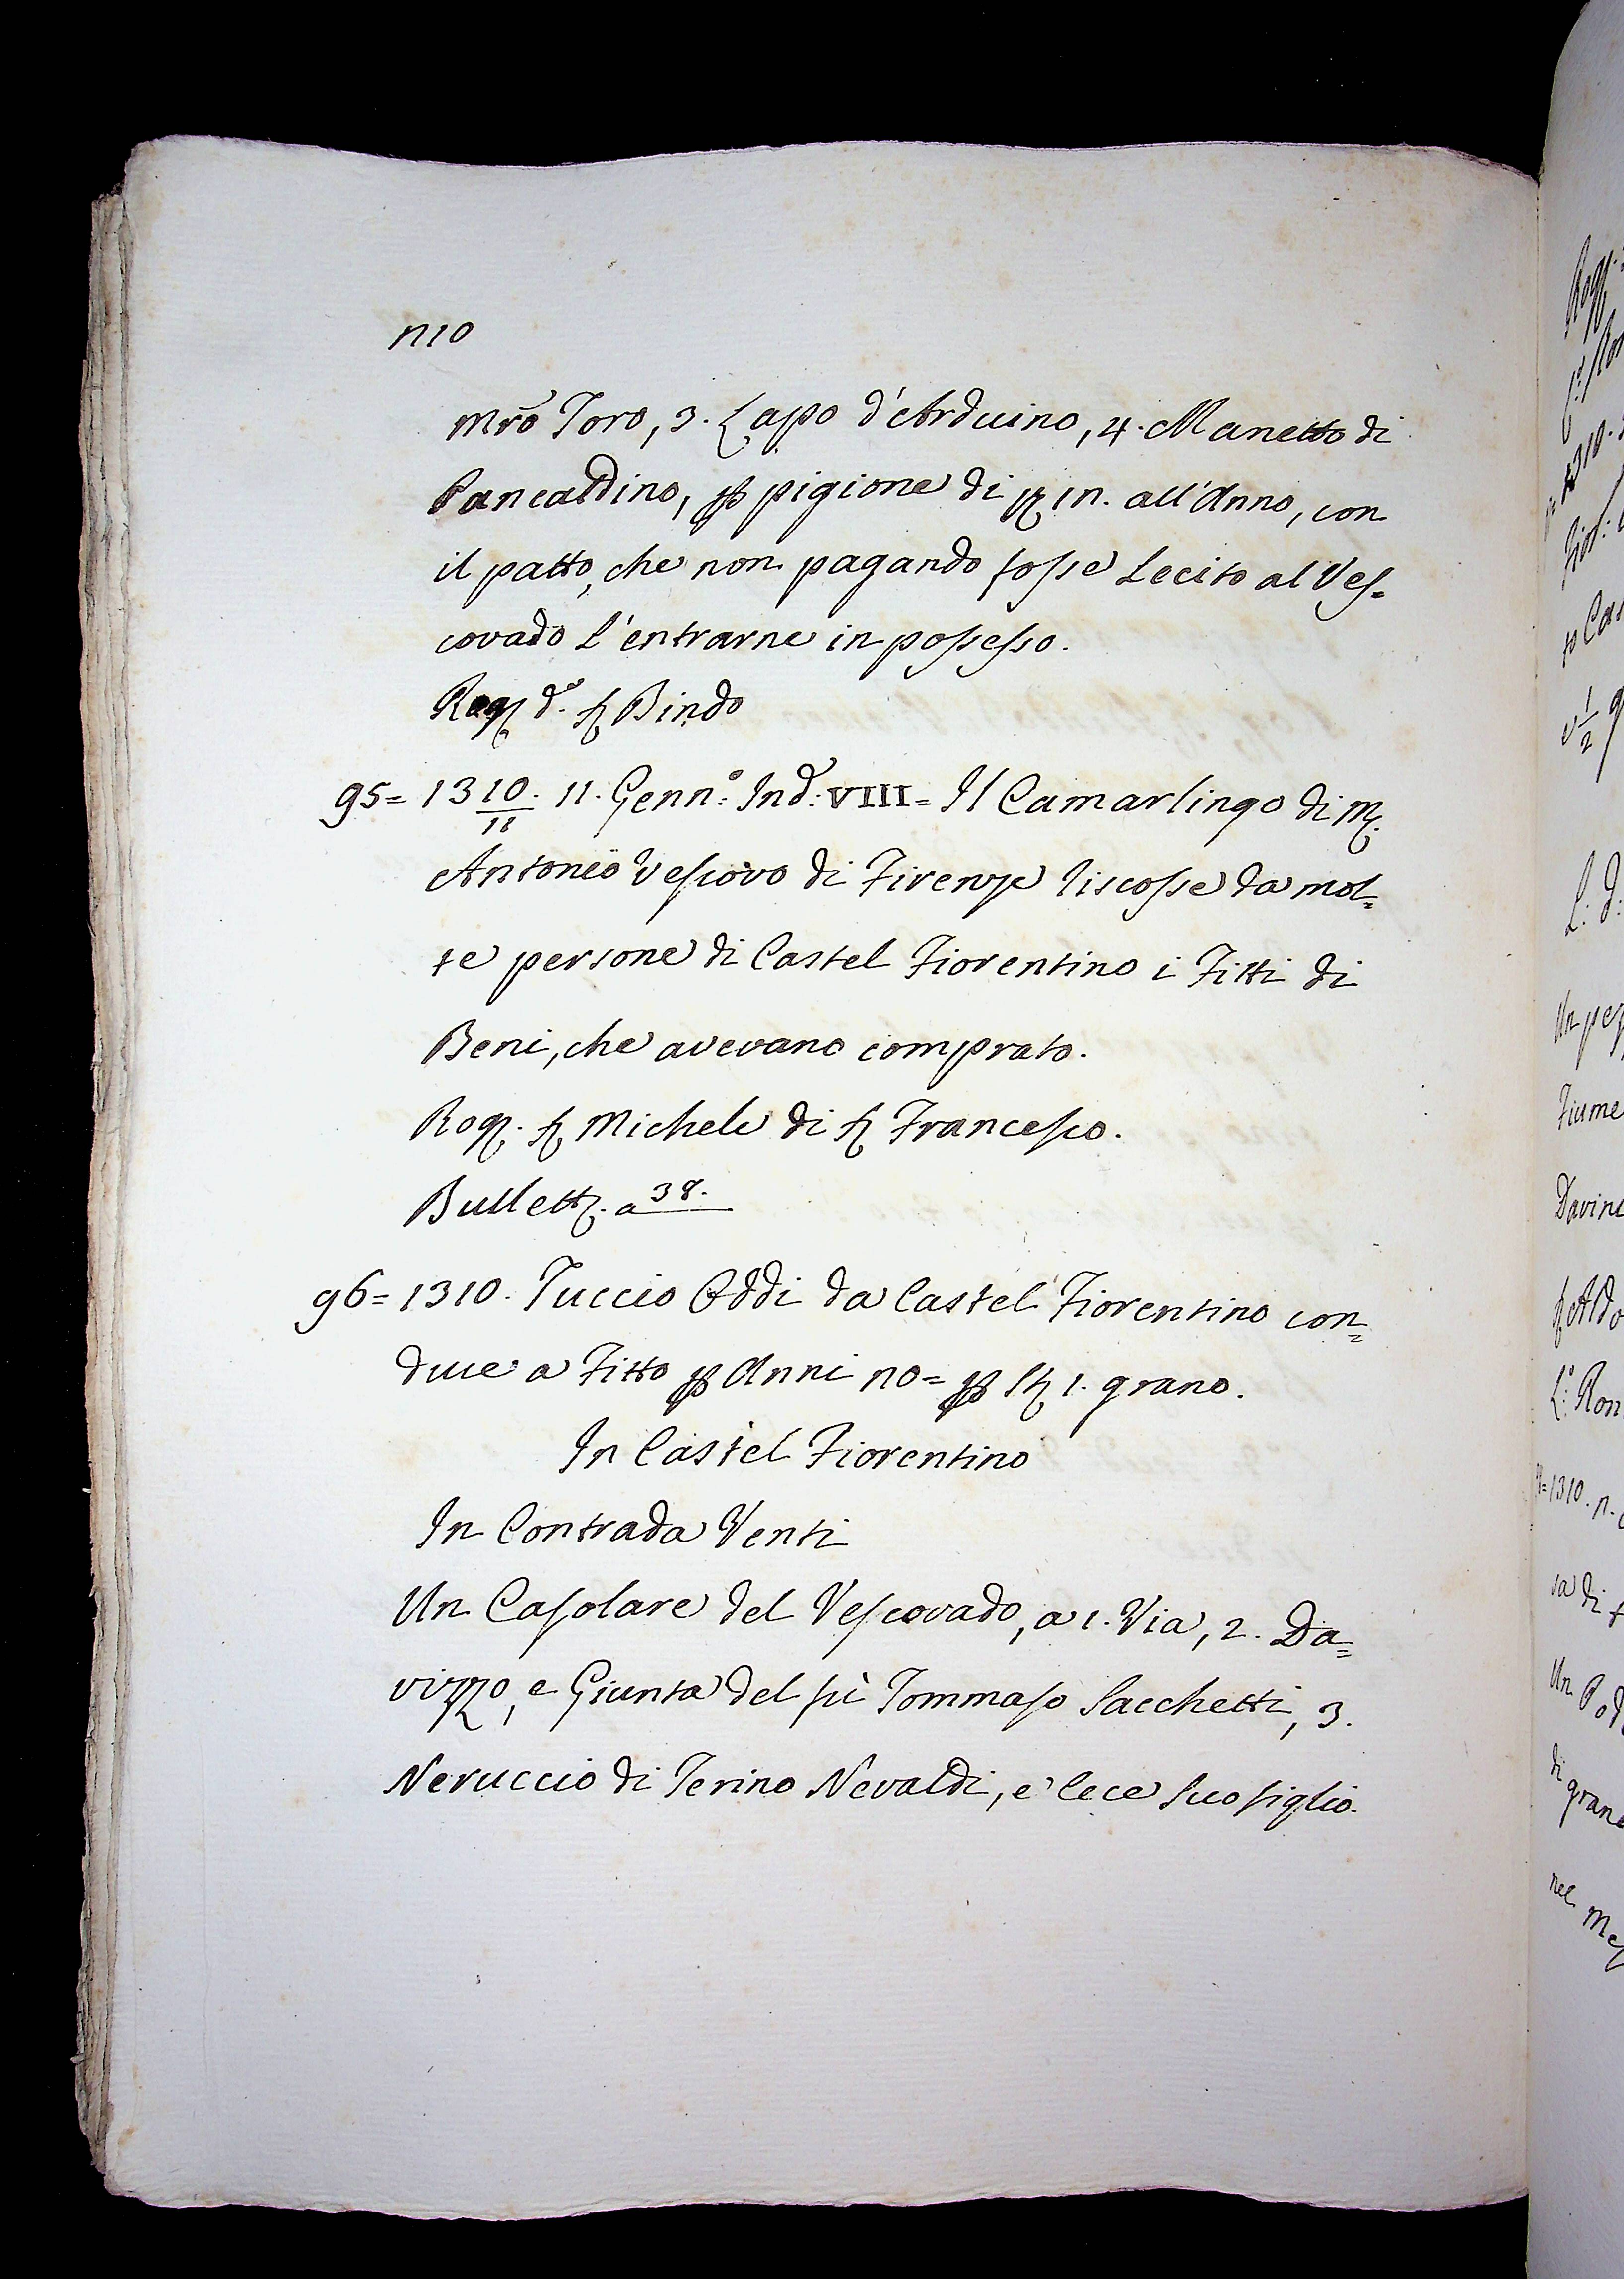 210
Mrõ Toro, 3. Lapo d'Arduino, 4. Manetto di
Pancaldino, p pigione di 12. all'Anno, con
il patto, che non pagando fosse Lecito al Ves=
covado l'entrarne in possesso.
Rog. d.º S. Bindo
95= 1310/11. 11. Genn.º Ind: VIII= Il Camarlingo di M.
Antonio Vescovo di Firenze riscosse da mol=
te persone di Castel Fiorentino i Fitti di
Beni, che avevano comprato.
Rog. S. Michele di S. Francesco.
Bullett. a 38.
96= 1310. Tuccio Oddi da Castel Fiorentino con=
duce a Fitto p Anni 20= p St. 1. grano.
In Castel Fiorentino
In Contrada Venti
Un Casolare del Vescovado, a 1. Via, 2. Da=
vizzo, e Giunta del fù Tommaso Sacchetti, 3.
Neruccio di Terino Nevaldi, e Cece suo figlio.
1310.
Fiume
Un
di
nel